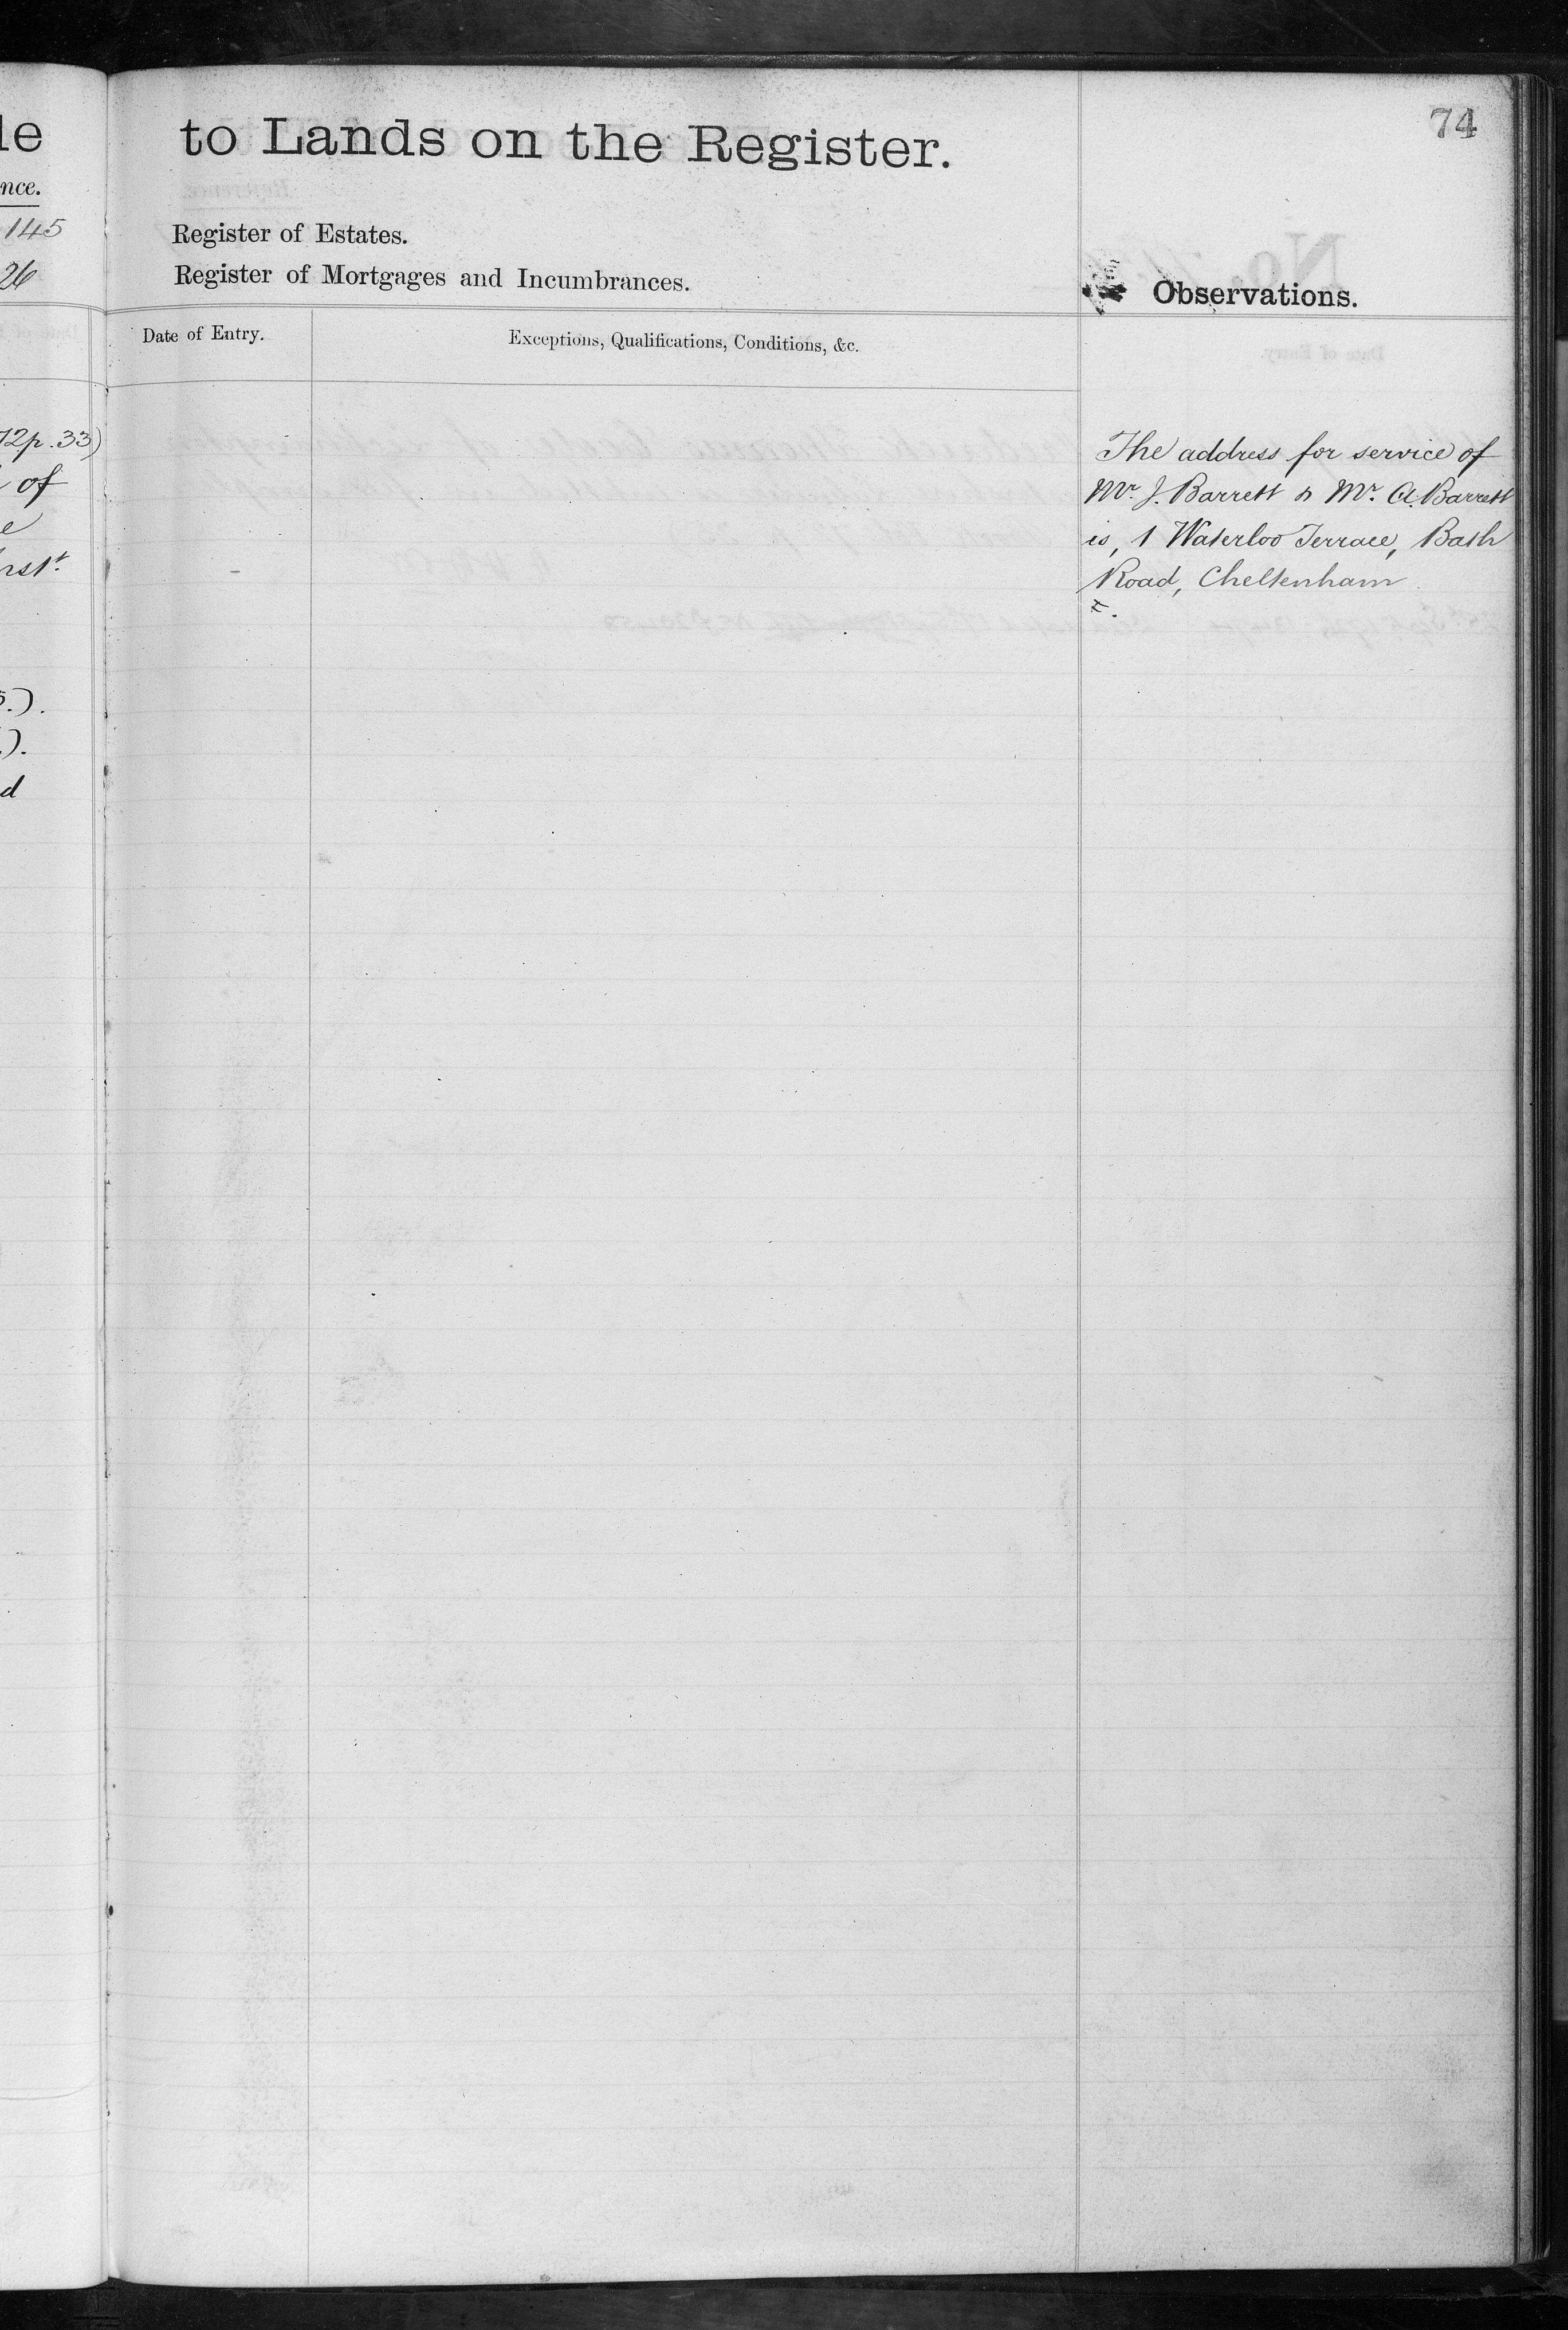 74
le
nce.
145
26
72 p. 33)
of
e
).
d
to Lands on the Register.
Register of Estates.
Register of Mortgages and Incumbrances.
Date of Entry.
Exceptions, Qualifications, Conditions, &c.
Observations.
The address for service of
Mr. J. Barrett & Mr. A. Barrett
is, 1 Waterloo Terrace, Bath
Road, Cheltenham